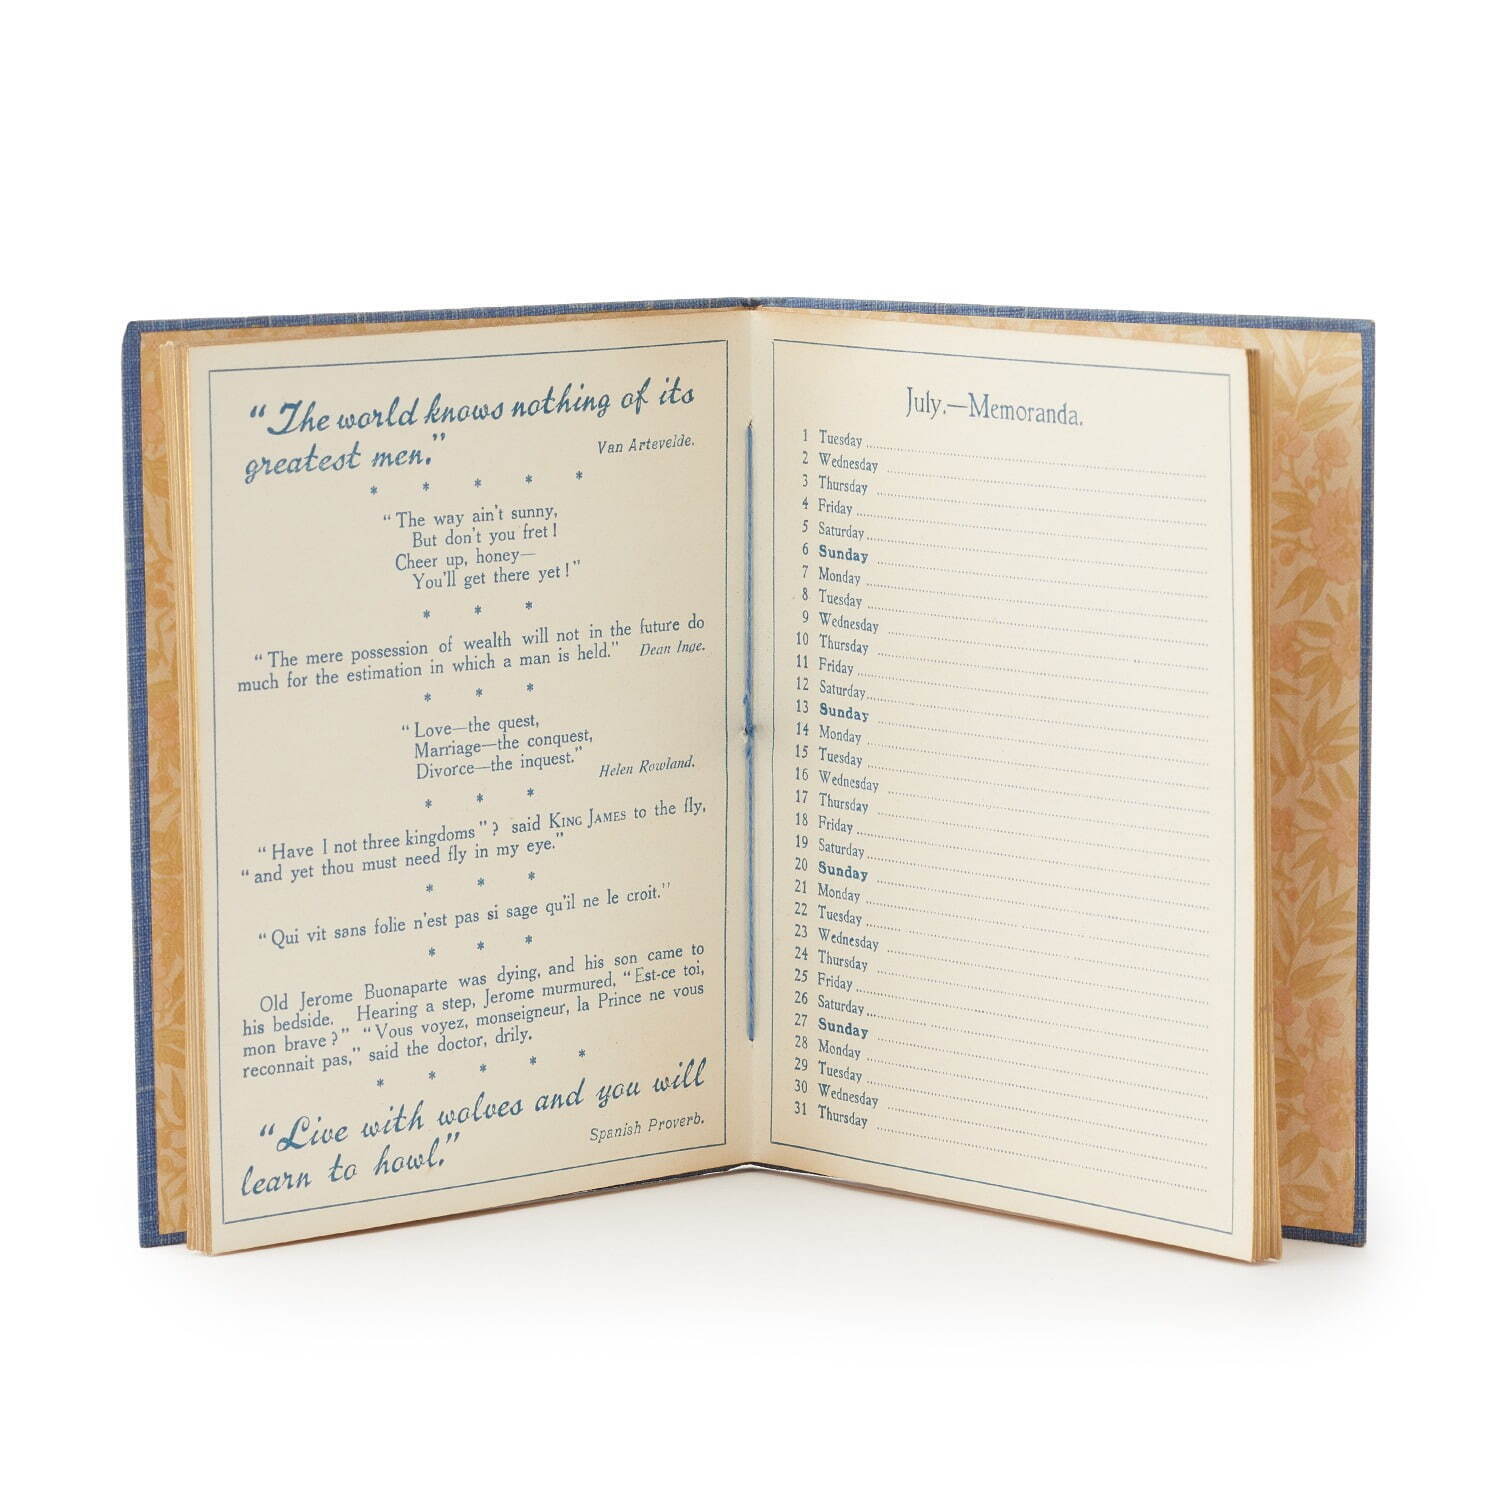 “The world knows nothing of its
greatest men.”
Van Artevelde.
* * * * *
“The way ain't sunny,
But don't you fret!
Cheer up, honey—
You'll get there yet!”
* * *
“The mere possession of wealth will not in the future do
much for the estimation in which a man is held.” Dean Inge.
* * *
“Love—the quest,
Marriage—the conquest,
Divorce—the inquest.”
Helen Rowland.
* * *
“Have I not three kingdoms”? said KING JAMES to the fly,
“and yet thou must need fly in my eye.”
* * *
“Qui vit sans folie n'est pas si sage qu'il ne le croit.”
* * *
Old Jerome Buonaparte was dying, and his son came to
his bedside. Hearing a step, Jerome murmured, “Est-ce toi,
mon brave?” “Vous voyez, monseigneur, la Prince ne vous
reconnait pas,” said the doctor, drily.
* * * * *
“Live with wolves and you will
learn to howl.”
Spanish Proverb.
July.—Memoranda.
1 Tuesday
2 Wednesday
3 Thursday
4 Friday
5 Saturday
6 Sunday
7 Monday
8 Tuesday
9 Wednesday
10 Thursday
11 Friday
12 Saturday
13 Sunday
14 Monday
15 Tuesday
16 Wednesday
17 Thursday
18 Friday
19 Saturday
20 Sunday
21 Monday
22 Tuesday
23 Wednesday
24 Thursday
25 Friday
26 Saturday
27 Sunday
28 Monday
29 Tuesday
30 Wednesday
31 Thursday